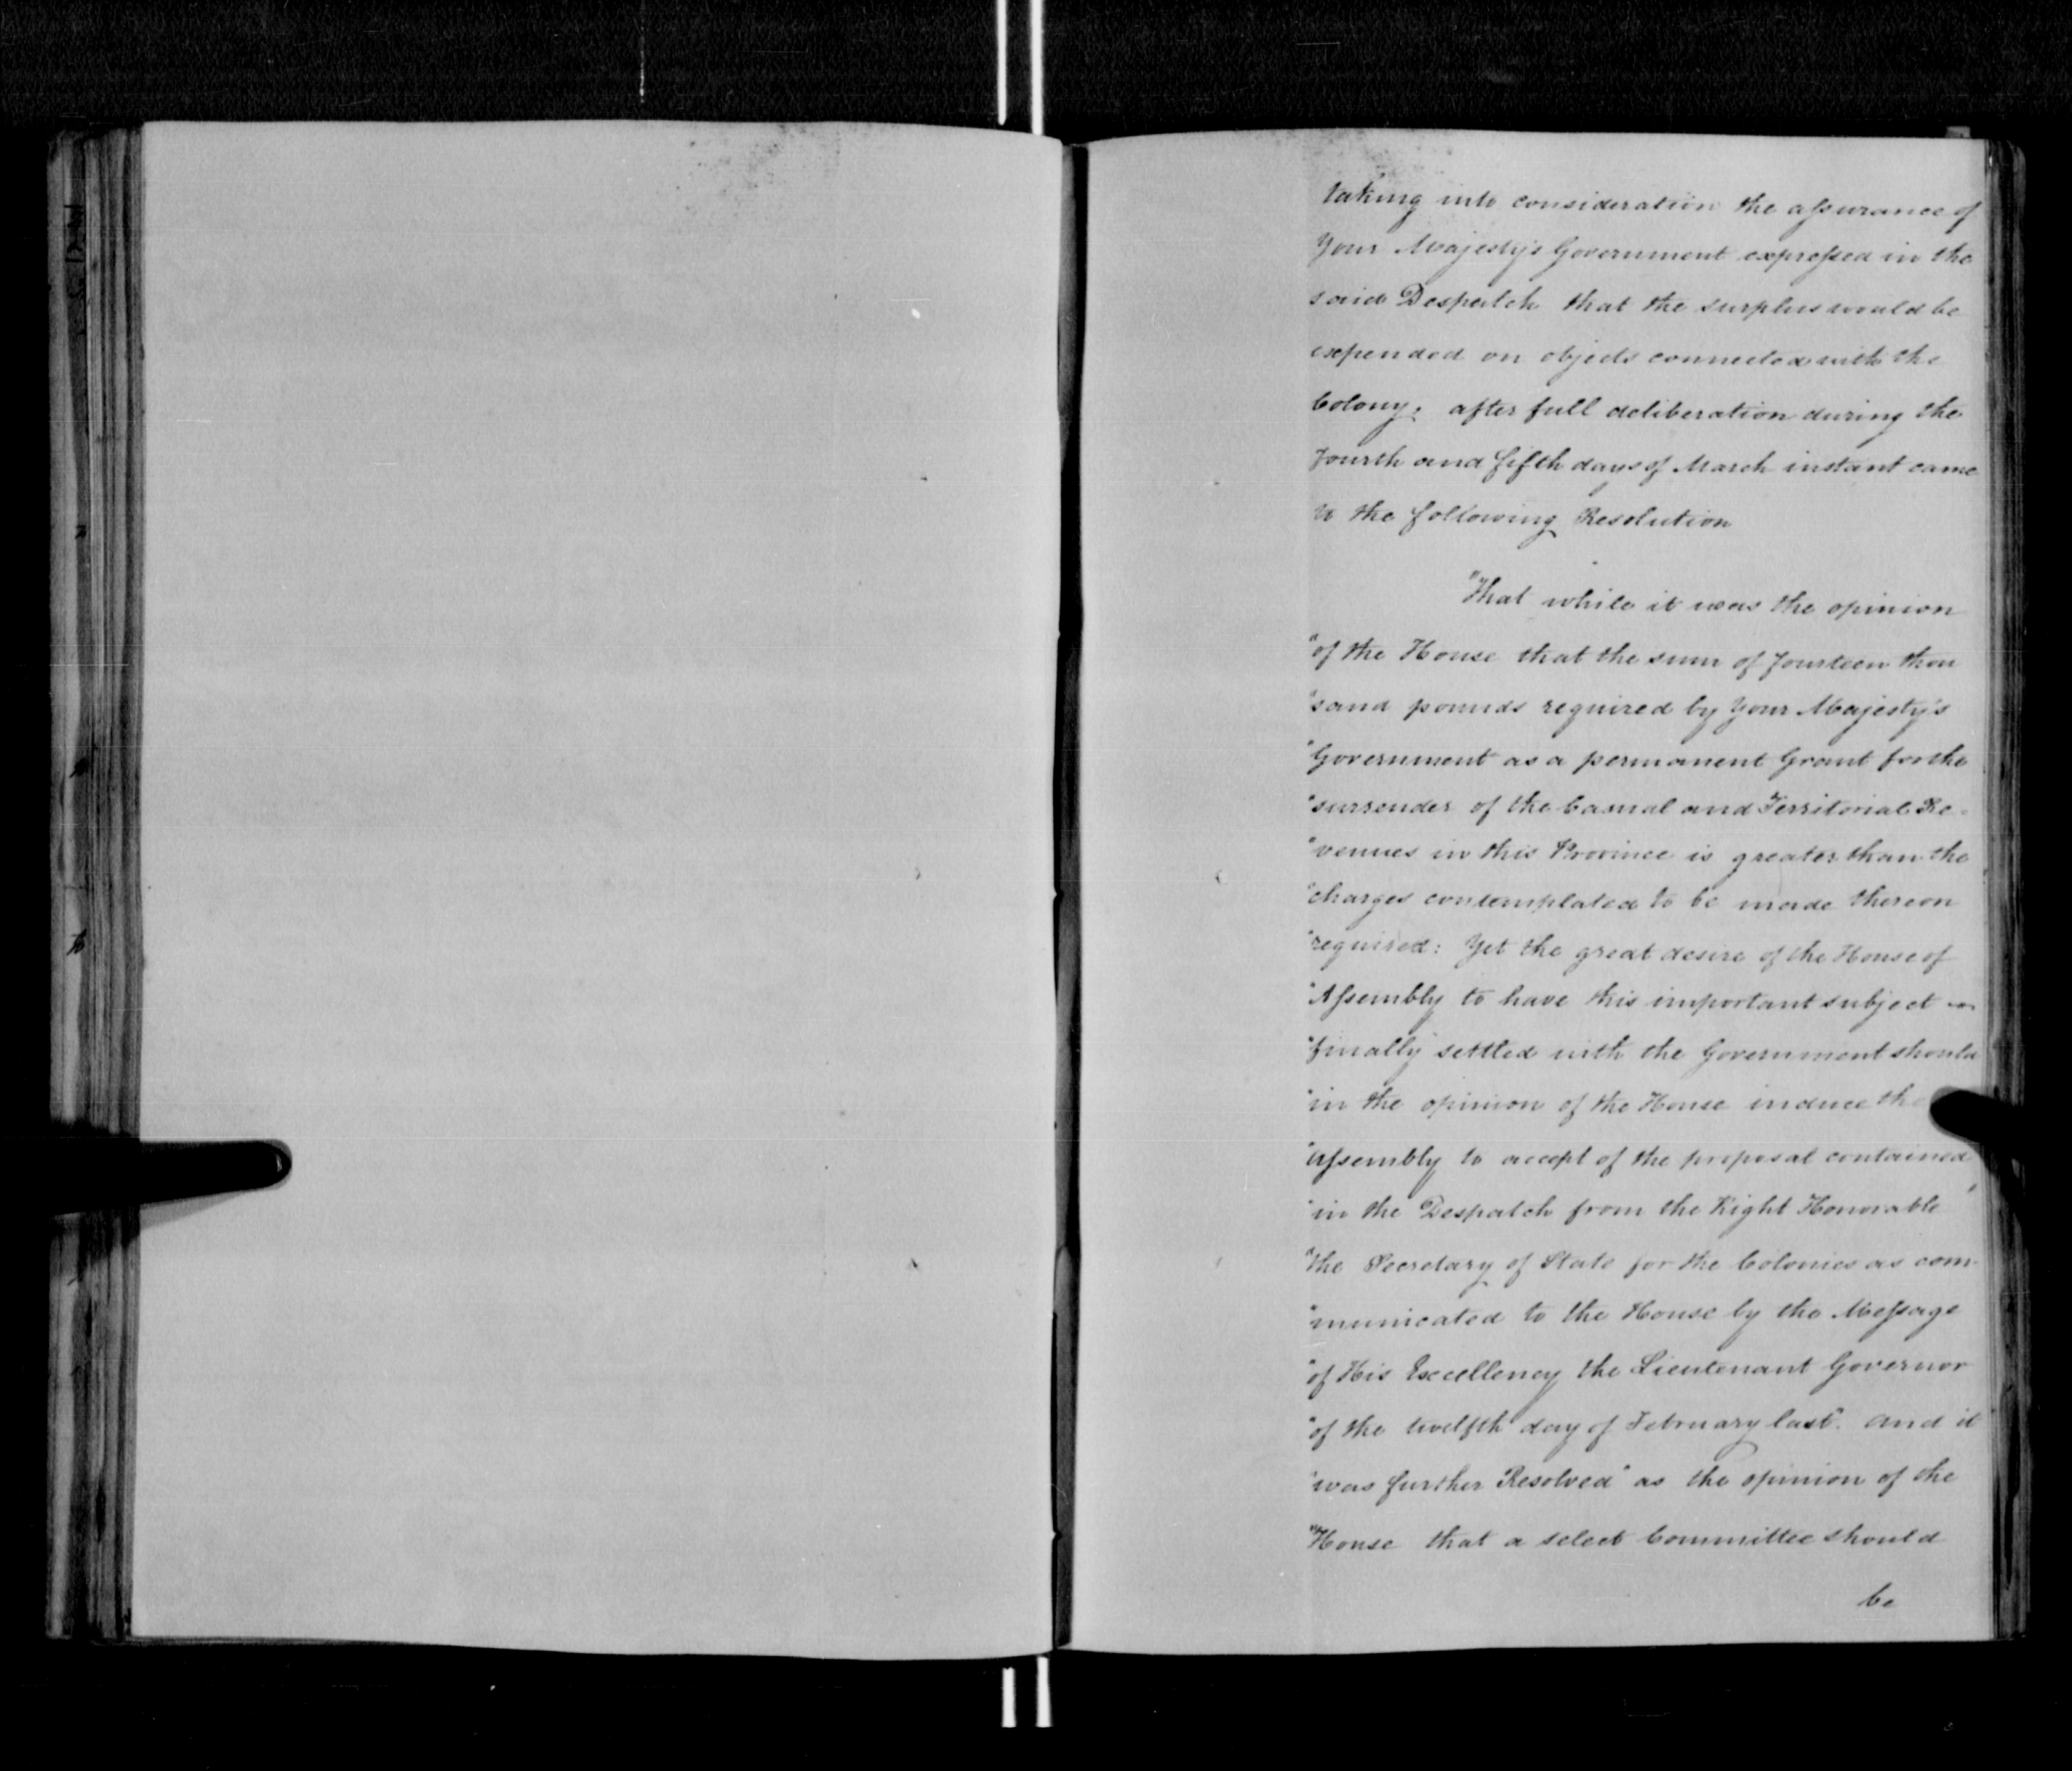 taking into consideration the assurance of
Your Majesty's Government expressed in the
said Despatch that the surplus would be
expended on objects connected with the
Colony, after full deliberation during the
fourth and fifth days of March instant came
to the following Resolution
"That while it was the opinion
"of the House that the sum of fourteen thou
"sand pounds required by Your Majesty's
"Government as a permanent Grant for the
"surrender of the Casual and Territorial Re-
"venues in this Province is greater than the
"charges contemplated to be made thereon
"required: Yet the great desire of the House of
"Assembly to have this important subject
"finally settled with the Government should
"in the opinion of the House induce the
"Assembly to accept of the proposal contained
"in the Despatch from the Right Honorable
"the Secretary of State for the Colonies as com-
"municated to the House by the Message
"of His Excellency the Lieutenant Governor
"of the twelfth day of February last". And it
"was further Resolved "as the opinion of the
"House that a select Committee should
be